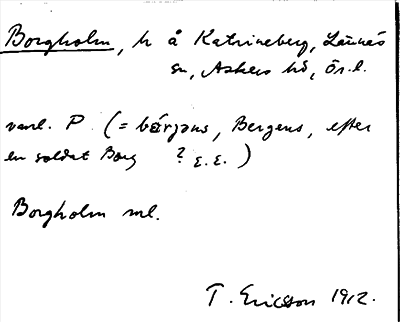 Borgholm, h å Katrineberg, Lännäs
sn, Askers hd, Ör.l.
vanl. P. (= bärjans, Bergens, efter
en soldat Borg ? E.E.)
Borgholm ml.
T. Ericsson 1912.